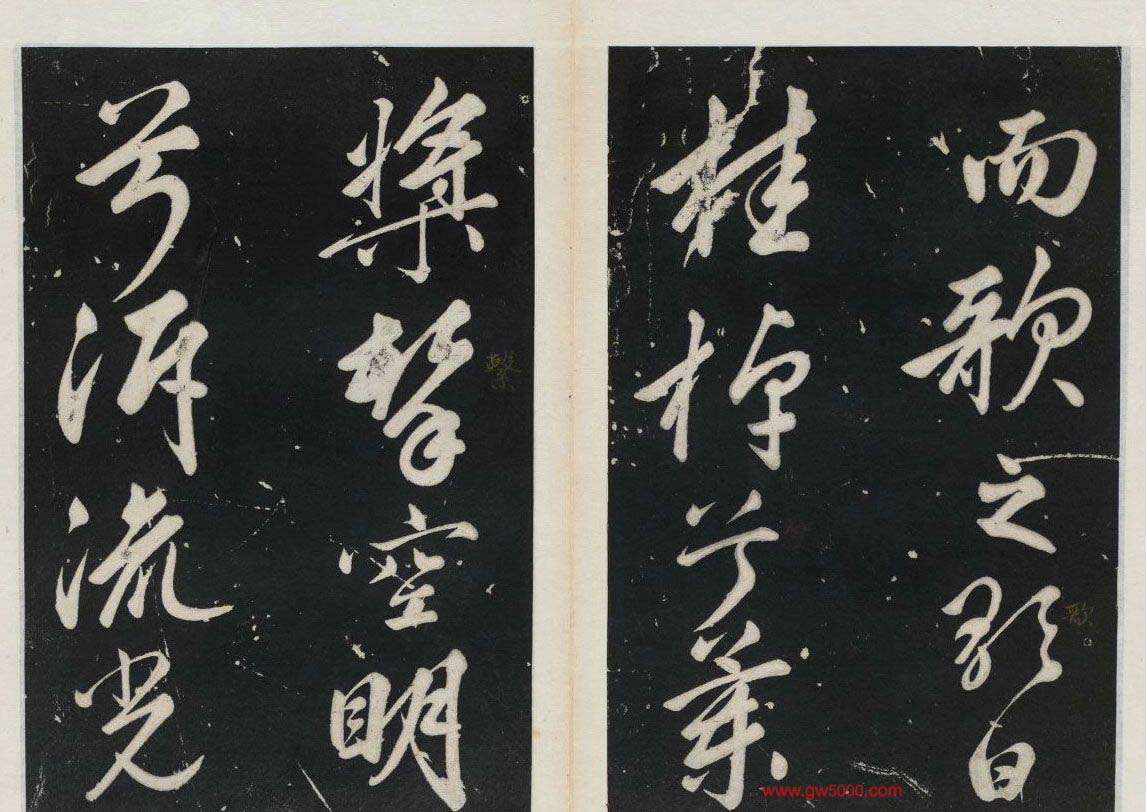 而歌之歌曰
歌
桂棹兮蘭
槳擊空明
兮泝流光
www.gw5000.com